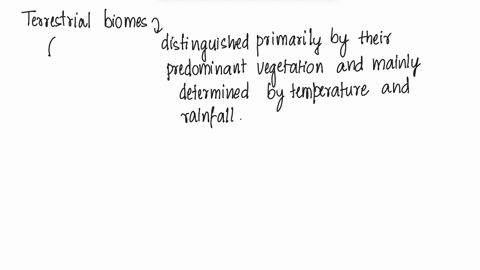 Terrestrial biomes
(
distinguished primarily by their
predominant vegetation and mainly
determined by temperature and
rainfall.